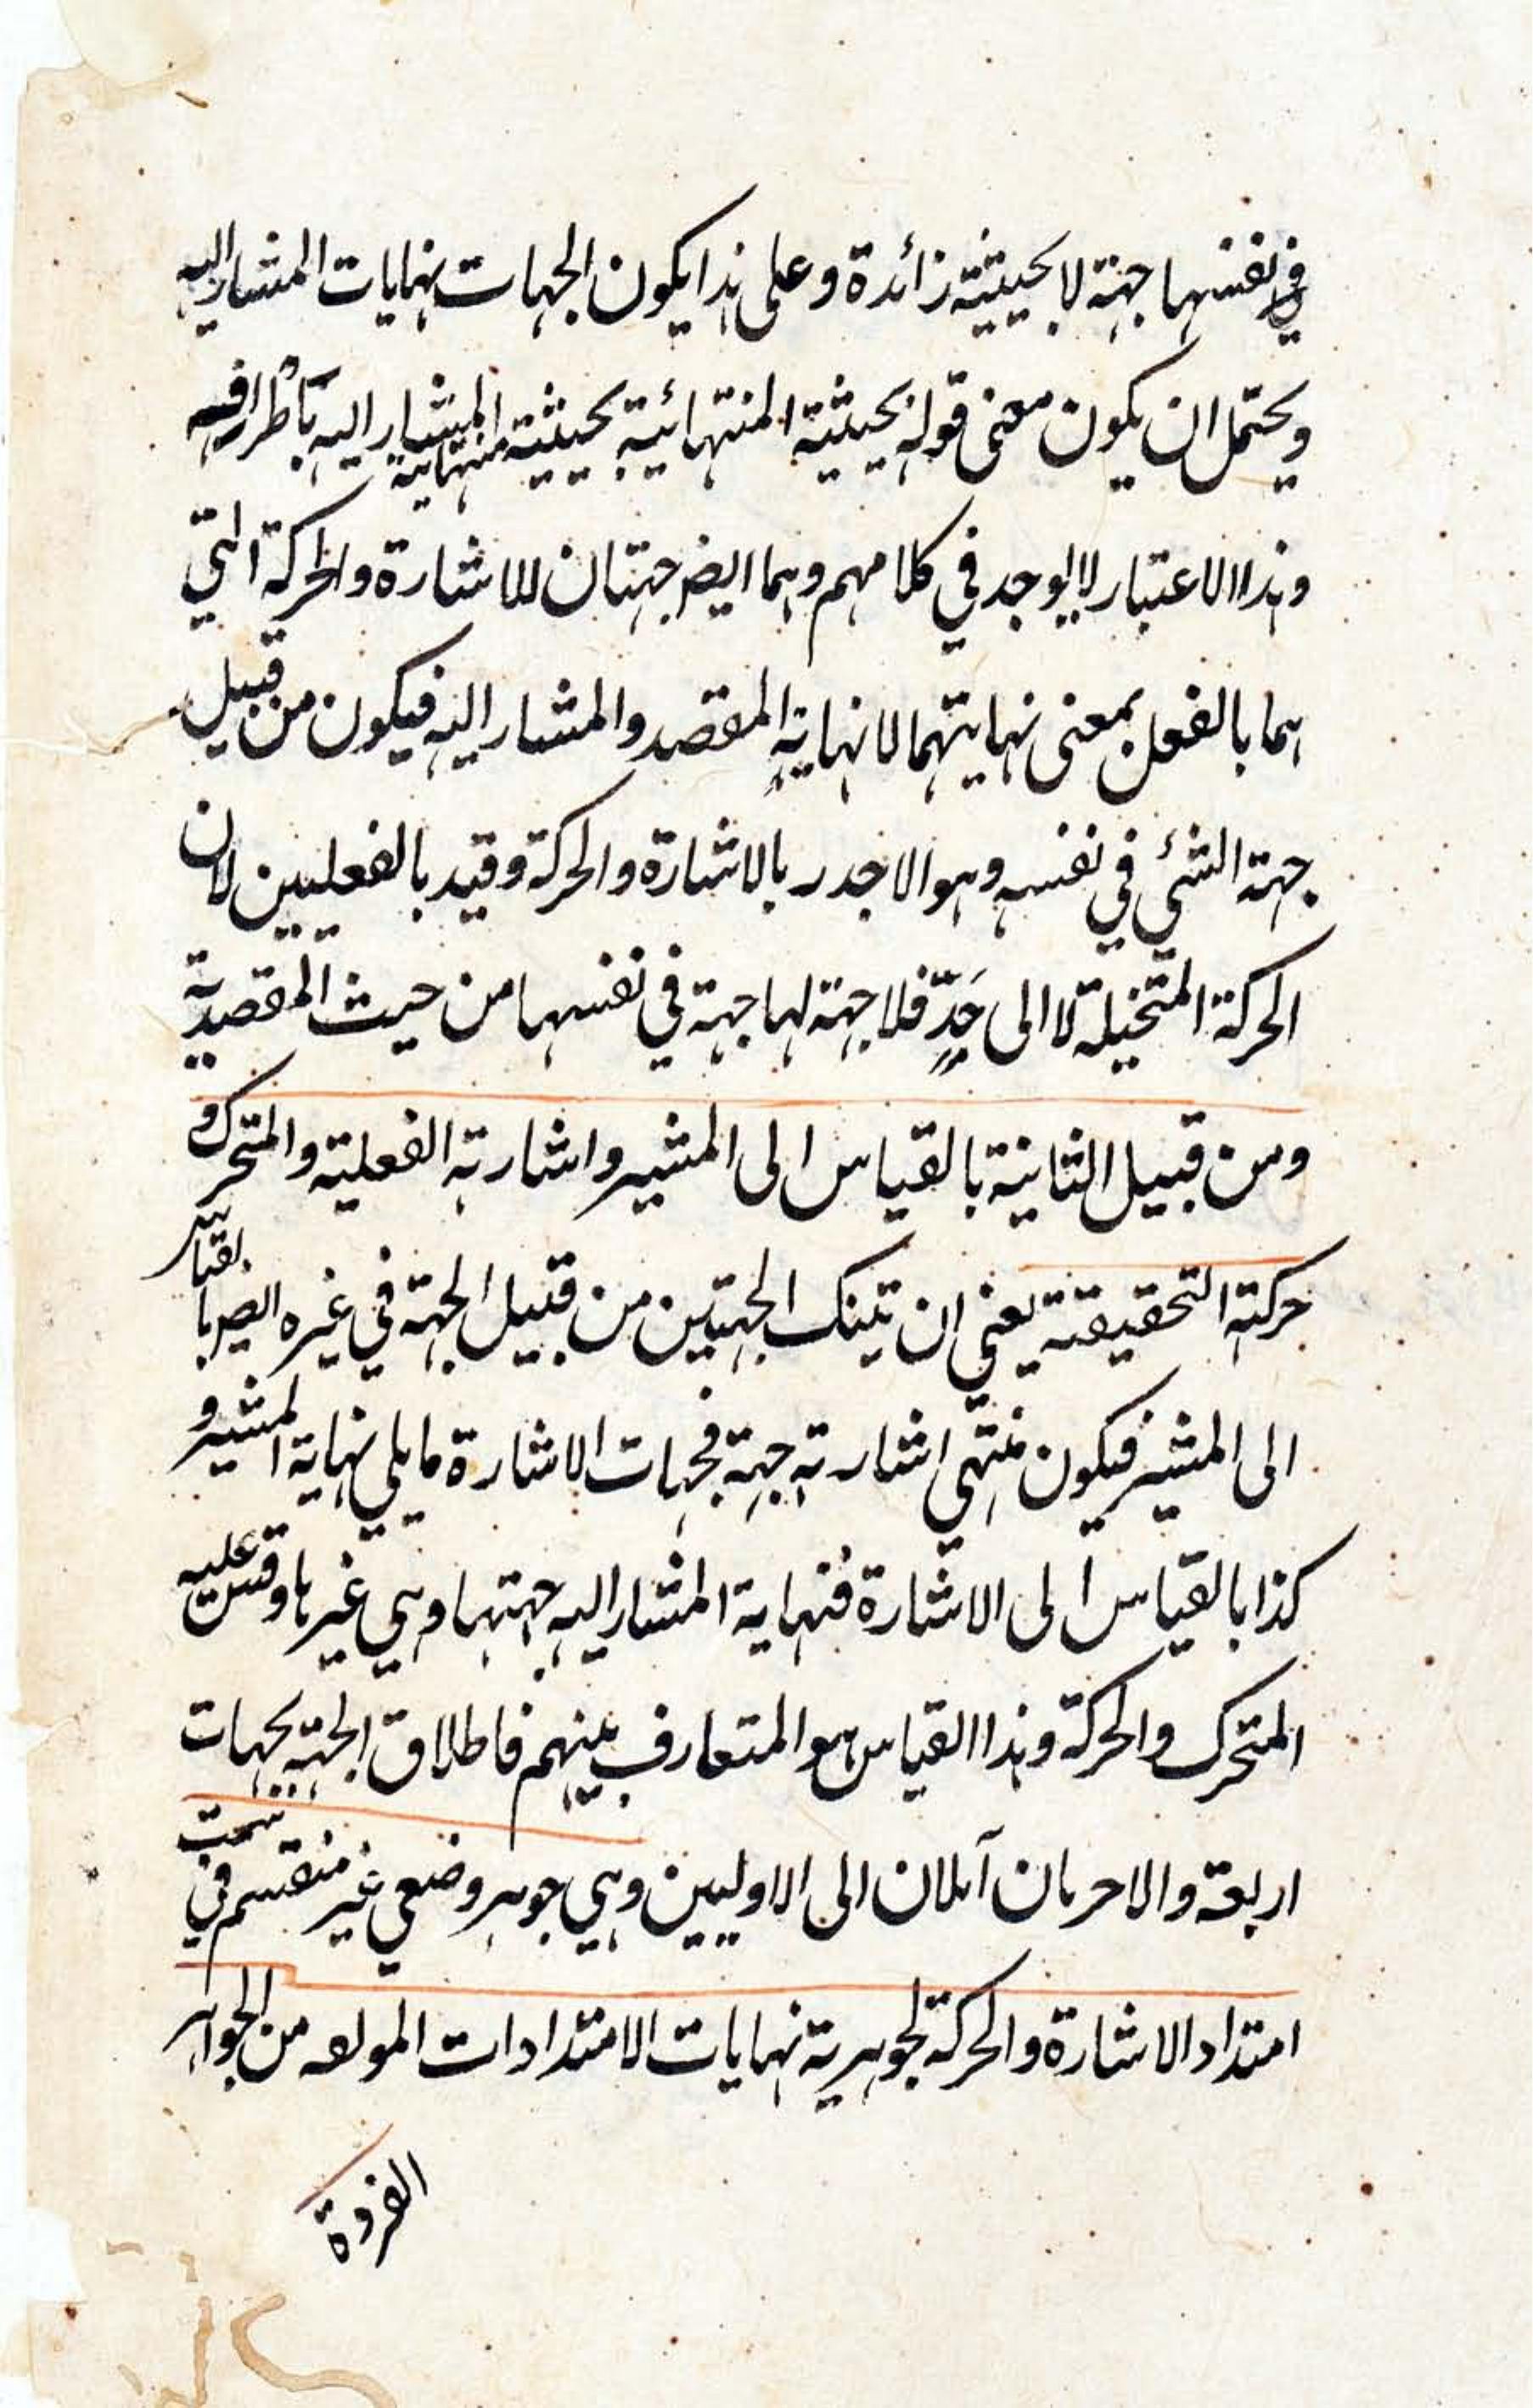 في نفسها جهة لا بحيثية زائدة وعلى هذا يكون الجهات نهايات المشار اليه
ويحتمل ان يكون معنى قوله بحيثية المنتهائية بحيثية منتهائية المشار اليه باطرافه
وهذا الاعتبار لا يوجد في كلامهم وهما ايض جهتان للاشارة والحركة التي
هما بالفعل بمعنى نهايتهما لا نهاية المقصد والمشار اليه فيكون من قبيل
جهة الشئ في نفسه وهو الاجدر بالاشارة والحركة وقيد بالفعليين لان
الحركة المتخيلة لا الى حَدٍّ فلا جهة لها جهة في نفسها من حيث المقصدية
ومن قبيل الثانية بالقياس الى المشير واشارته الفعلية والمتحرك و
حركته التحقيقية يعني ان تينك الجهتين من قبيل الجهة في غيره ايض بالقياس
الى المشير فيكون منتهي اشارته جهة فجهات الاشارة ما يلي نهاية المشير و
كذا بالقياس الى الاشارة فنهاية المشار اليه جهتها وهي غيرها وقس عليه
المتحرك والحركة وهذا القياس هو المتعارف بينهم فاطلاق الجهة بجهات
اربعة والاخريان آئلان الى الاوليين وهي جوهر وضعي غير منقسم في سمت
امتداد الاشارة والحركة لجوهرية نهايات الامتدادات المولفه من الجواهر
الفردة